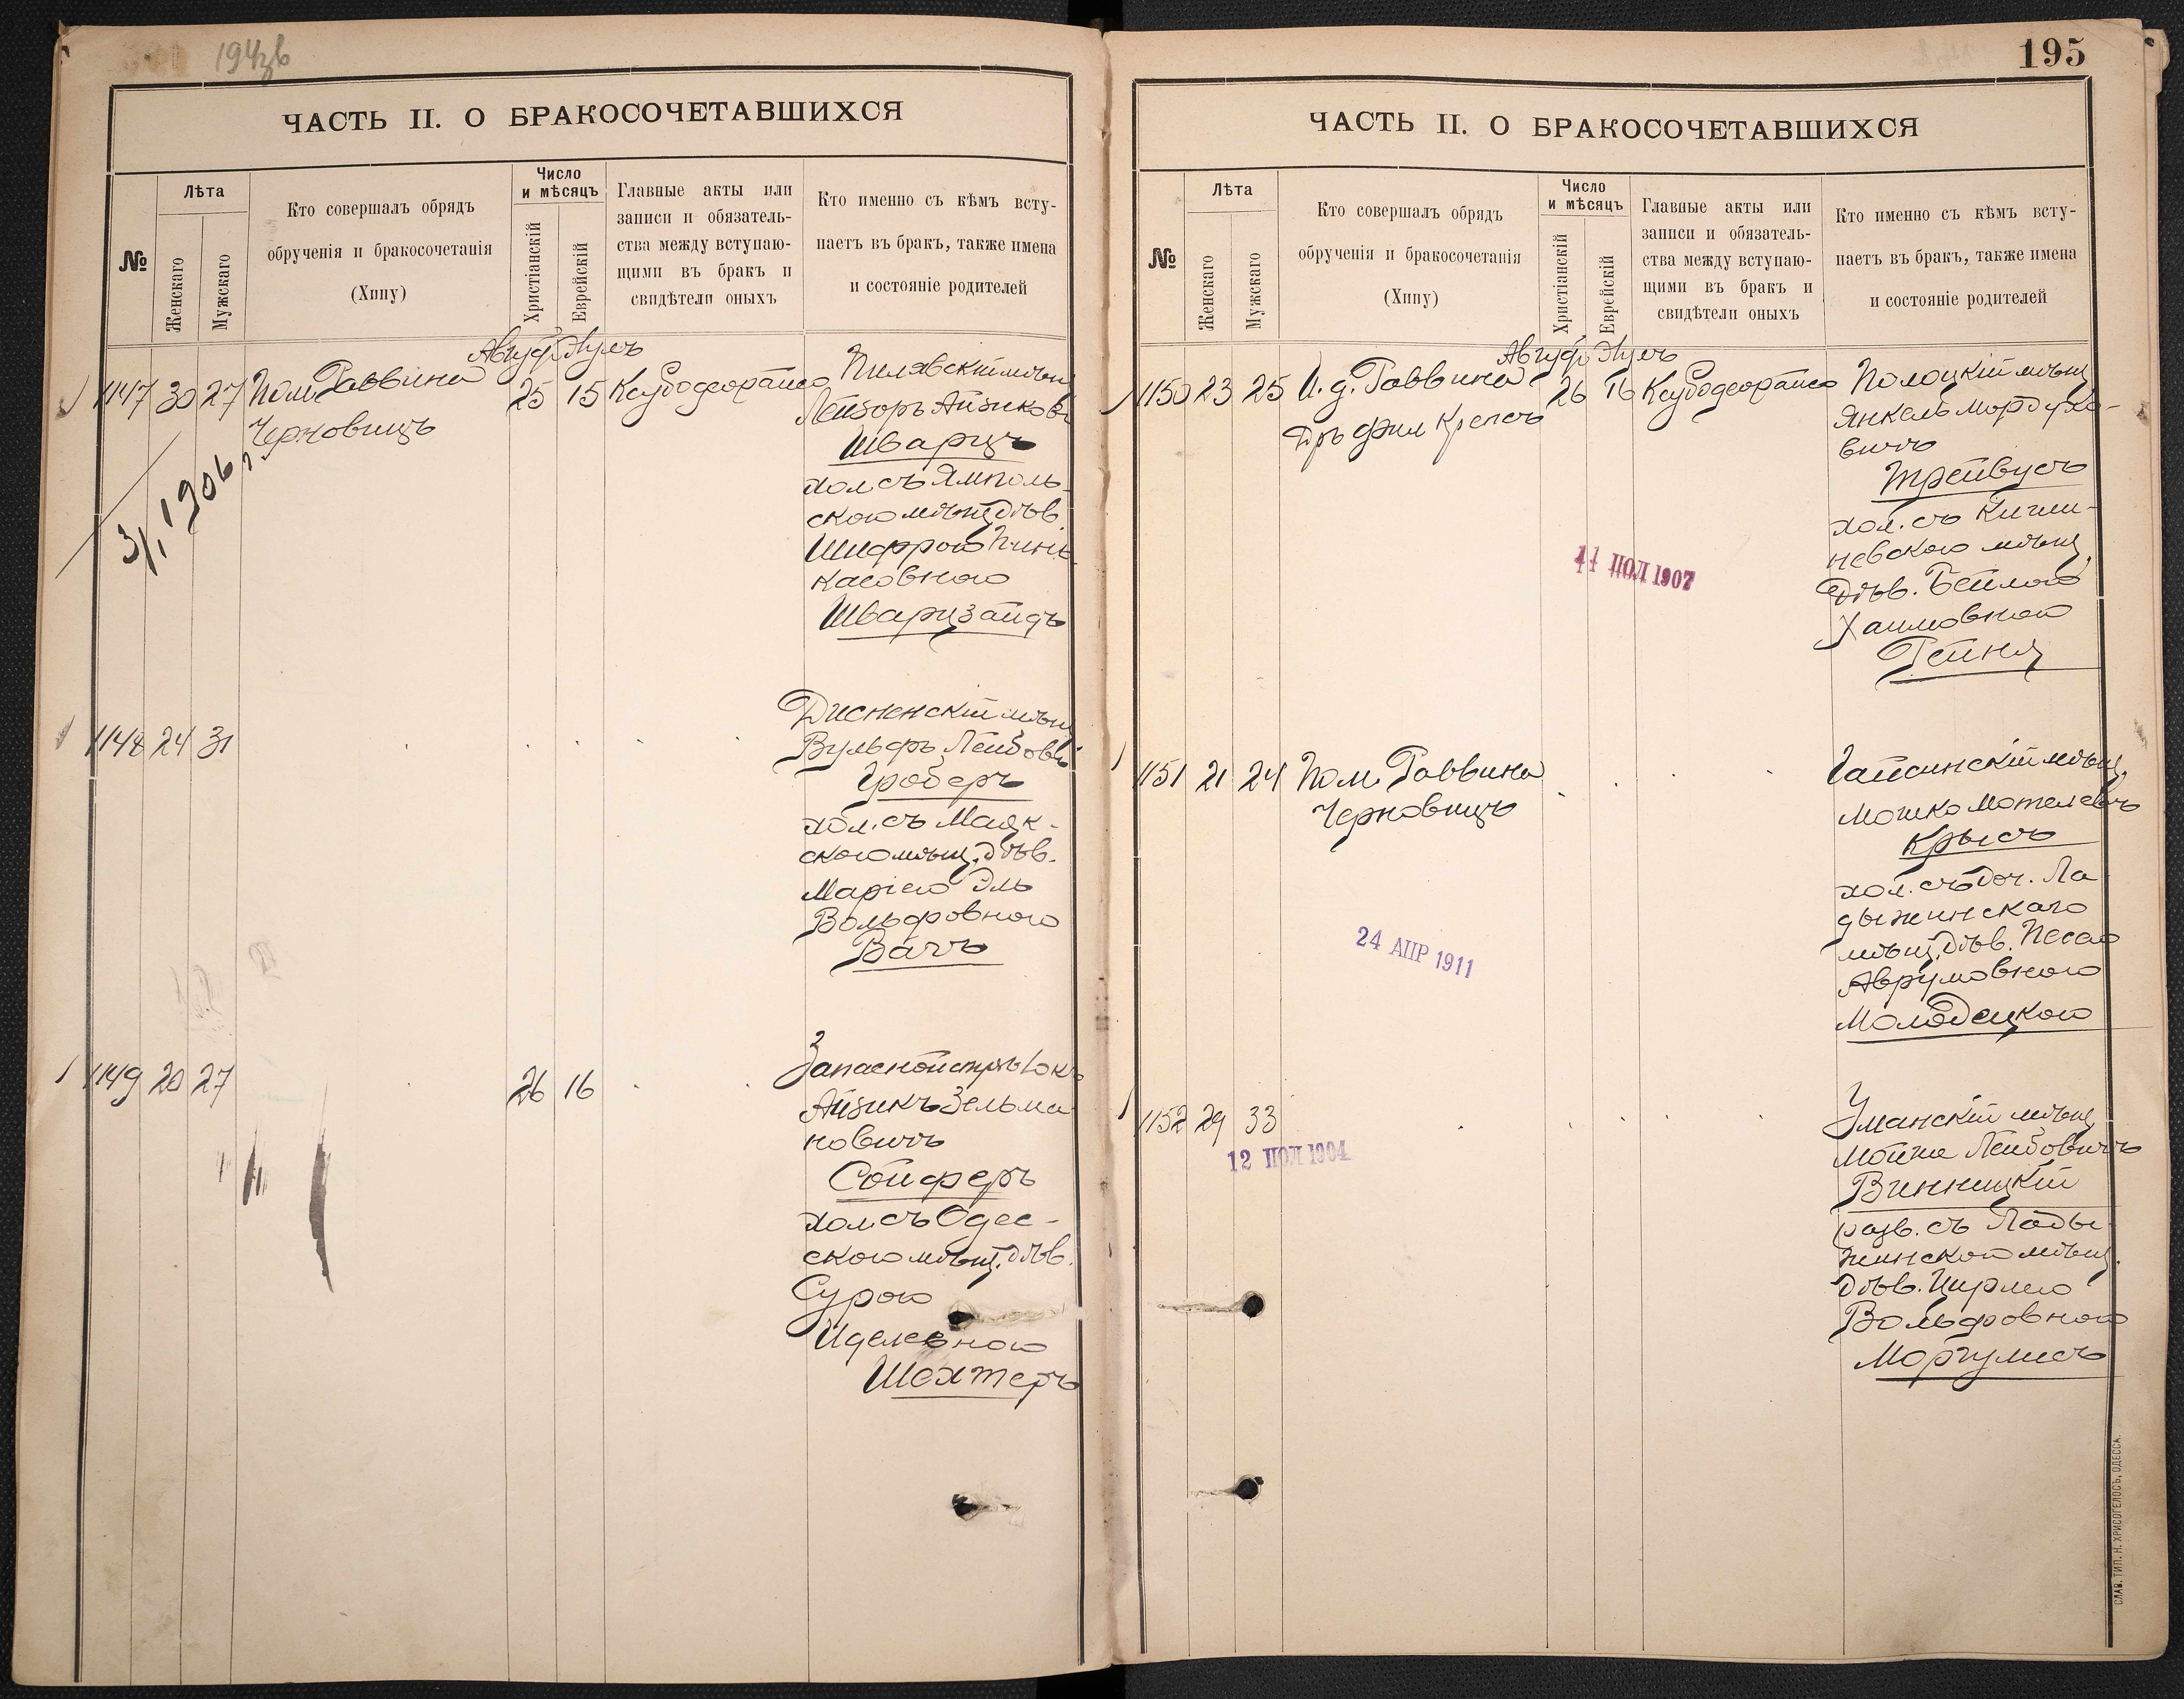 194
ЧАСТЬ II. О БРАКОСОЧЕТАВШИХСЯ
№
Лѣта
Женскаго
Мужскаго
Кто совершалъ обрядъ
обрученія и бракосочетанія
(Хипу)
Число
и мѣсяцъ
Христіанскій
Еврейскій
Главные акты или
записи и обязатель-
ства между вступаю-
щими въ бракъ и
свидѣтели оныхъ
Кто именно съ кѣмъ всту-
паетъ въ бракъ, также имена
и состояніе родителей
1147 30 27 Пом. Раввина
Черновицъ
25 15
3/1 1906 г.
Пилявскій мѣщ
Лейзоръ Айзикови
Шварцъ
хол. съ Ямполь-
скою мѣщ. дѣв.
Шифрою Пинь
касовною
Шварцзайдъ
1148 24 31
Дисненскій мѣщ
Вульфъ Лейбови
Гроберъ
хол. съ Маяк-
скою мѣщ. дѣв.
Маріею Эль
Вольфовною
Вачъ
1149 20 27
26 16
Запасной
Айзикъ Зельма
новичъ
Сойферъ
хол. съ Одес-
скою мѣщ. дѣв.
Сурою
Иделевною
Шехтеръ
195
ЧАСТЬ II. О БРАКОСОЧЕТАВШИХСЯ
№
Лѣта
Женскаго
Мужскаго
Кто совершалъ обрядъ
обрученія и бракосочетанія
(Хипу)
Число
и мѣсяцъ
Христіанскій
Еврейскій
Главные акты или
записи и обязатель-
ства между вступаю-
щими въ бракъ и
свидѣтели оныхъ
Кто именно съ кѣмъ всту-
паетъ въ бракъ, также имена
и состояніе родителей
1150 23 25 И. д. Раввина
Дръ фил Крепсъ
26 16
11 ІЮЛ 1907
Полоцкій мѣщ
Янкель Мордухо-
вичъ
Трейвусъ
хол. съ Киши-
невскою мѣщ.
дѣв. Бейлою
Хаимовною
Рейнъ
1151 21 24 Пом. Раввина
Черновицъ
24 АПР 1911
Гайсинскій мѣщ.
Мошко Мотелевичъ
Крысъ
хол. съ доч. Ла
дыжинскаго
мѣщ. дѣв. Песею
Аврумовною
Молодецкою
1152 29 33
12 ІЮЛ 1904
Уманскій мѣщ
Мойше Лейбовичъ
Винницкій
разв. съ Лады
жинскою мѣщ.
дѣв. Цирлею
Вольфовною
Моргулисъ
СЛАВ. ТИП. Н. ХРИСОГЕЛОСЪ, ОДЕССА.